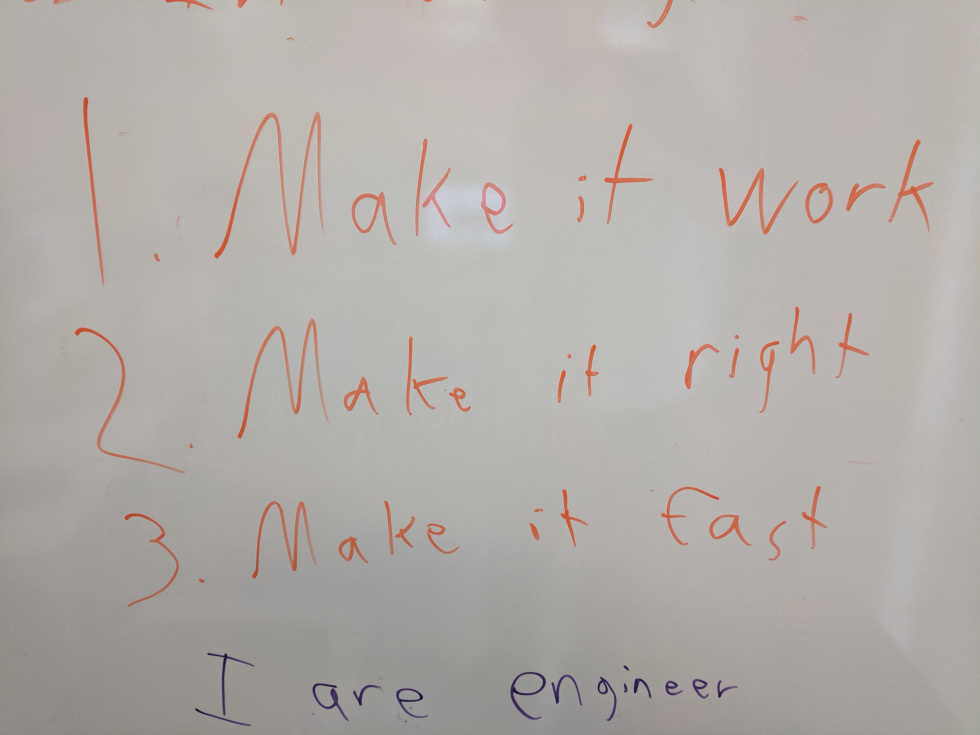 1. Make it work
2. Make it right
3. Make it fast
I are engineer